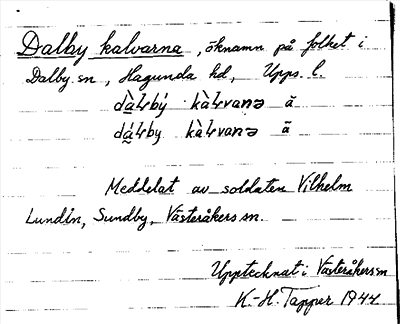 Dalby kalvarna, öknamn på folket i
Dalby sn, Hagunda hd, Upps. l.
Meddelat av soldaten Vilhelm
Lundin, Sundby, Västeråkers sn.
Upptecknat i Västeråkers sn
K.-H. Tapper 1944